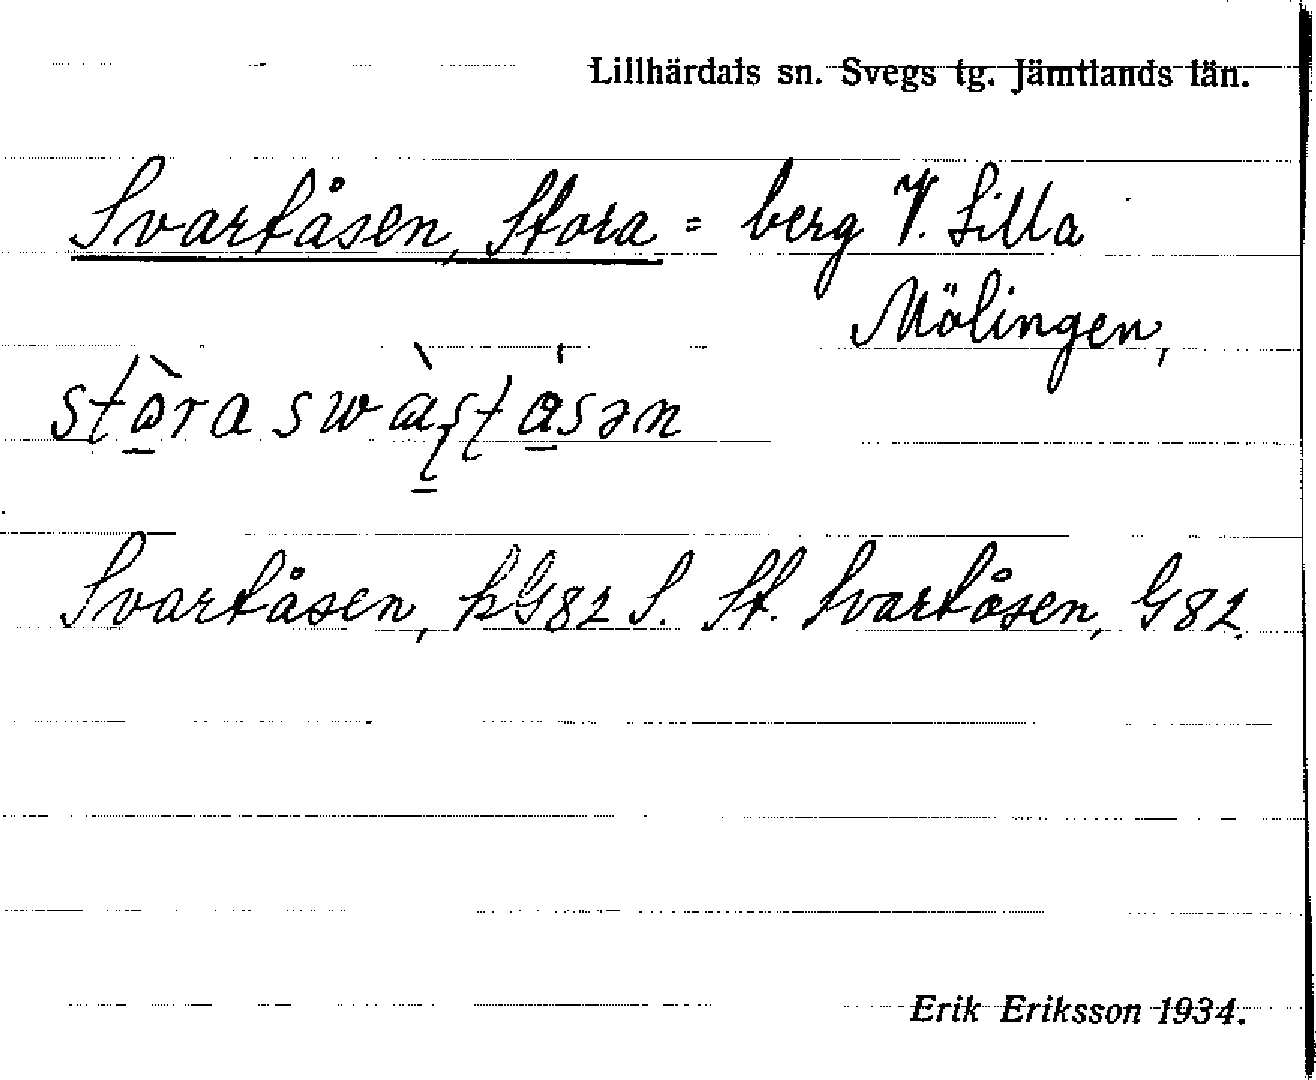 Lillhärdals sn. Svegs tg. Jämtlands län.
Svartåsen, Stora = berg V. Lilla
Mölingen,
Svartåsen, S. St. Svartåsen, G82.
Erik Eriksson 1934.